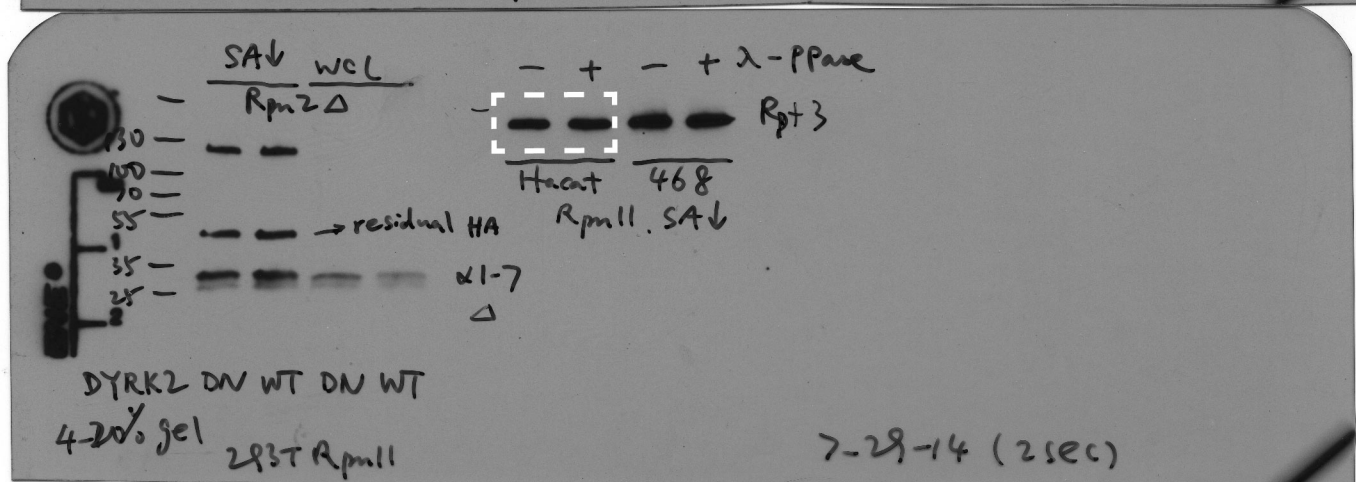 SA↓ WCL
Rpn2 Δ
130
100
70
55
35
25
1
2
→ residual HA
α1-7
Δ
DYRK2 DN WT DN WT
4-20% gel
293T Rpn11
- + - + λ-PPase
Rpt3
Hacat 468
Rpn11. SA↓
7-29-14 (2sec)